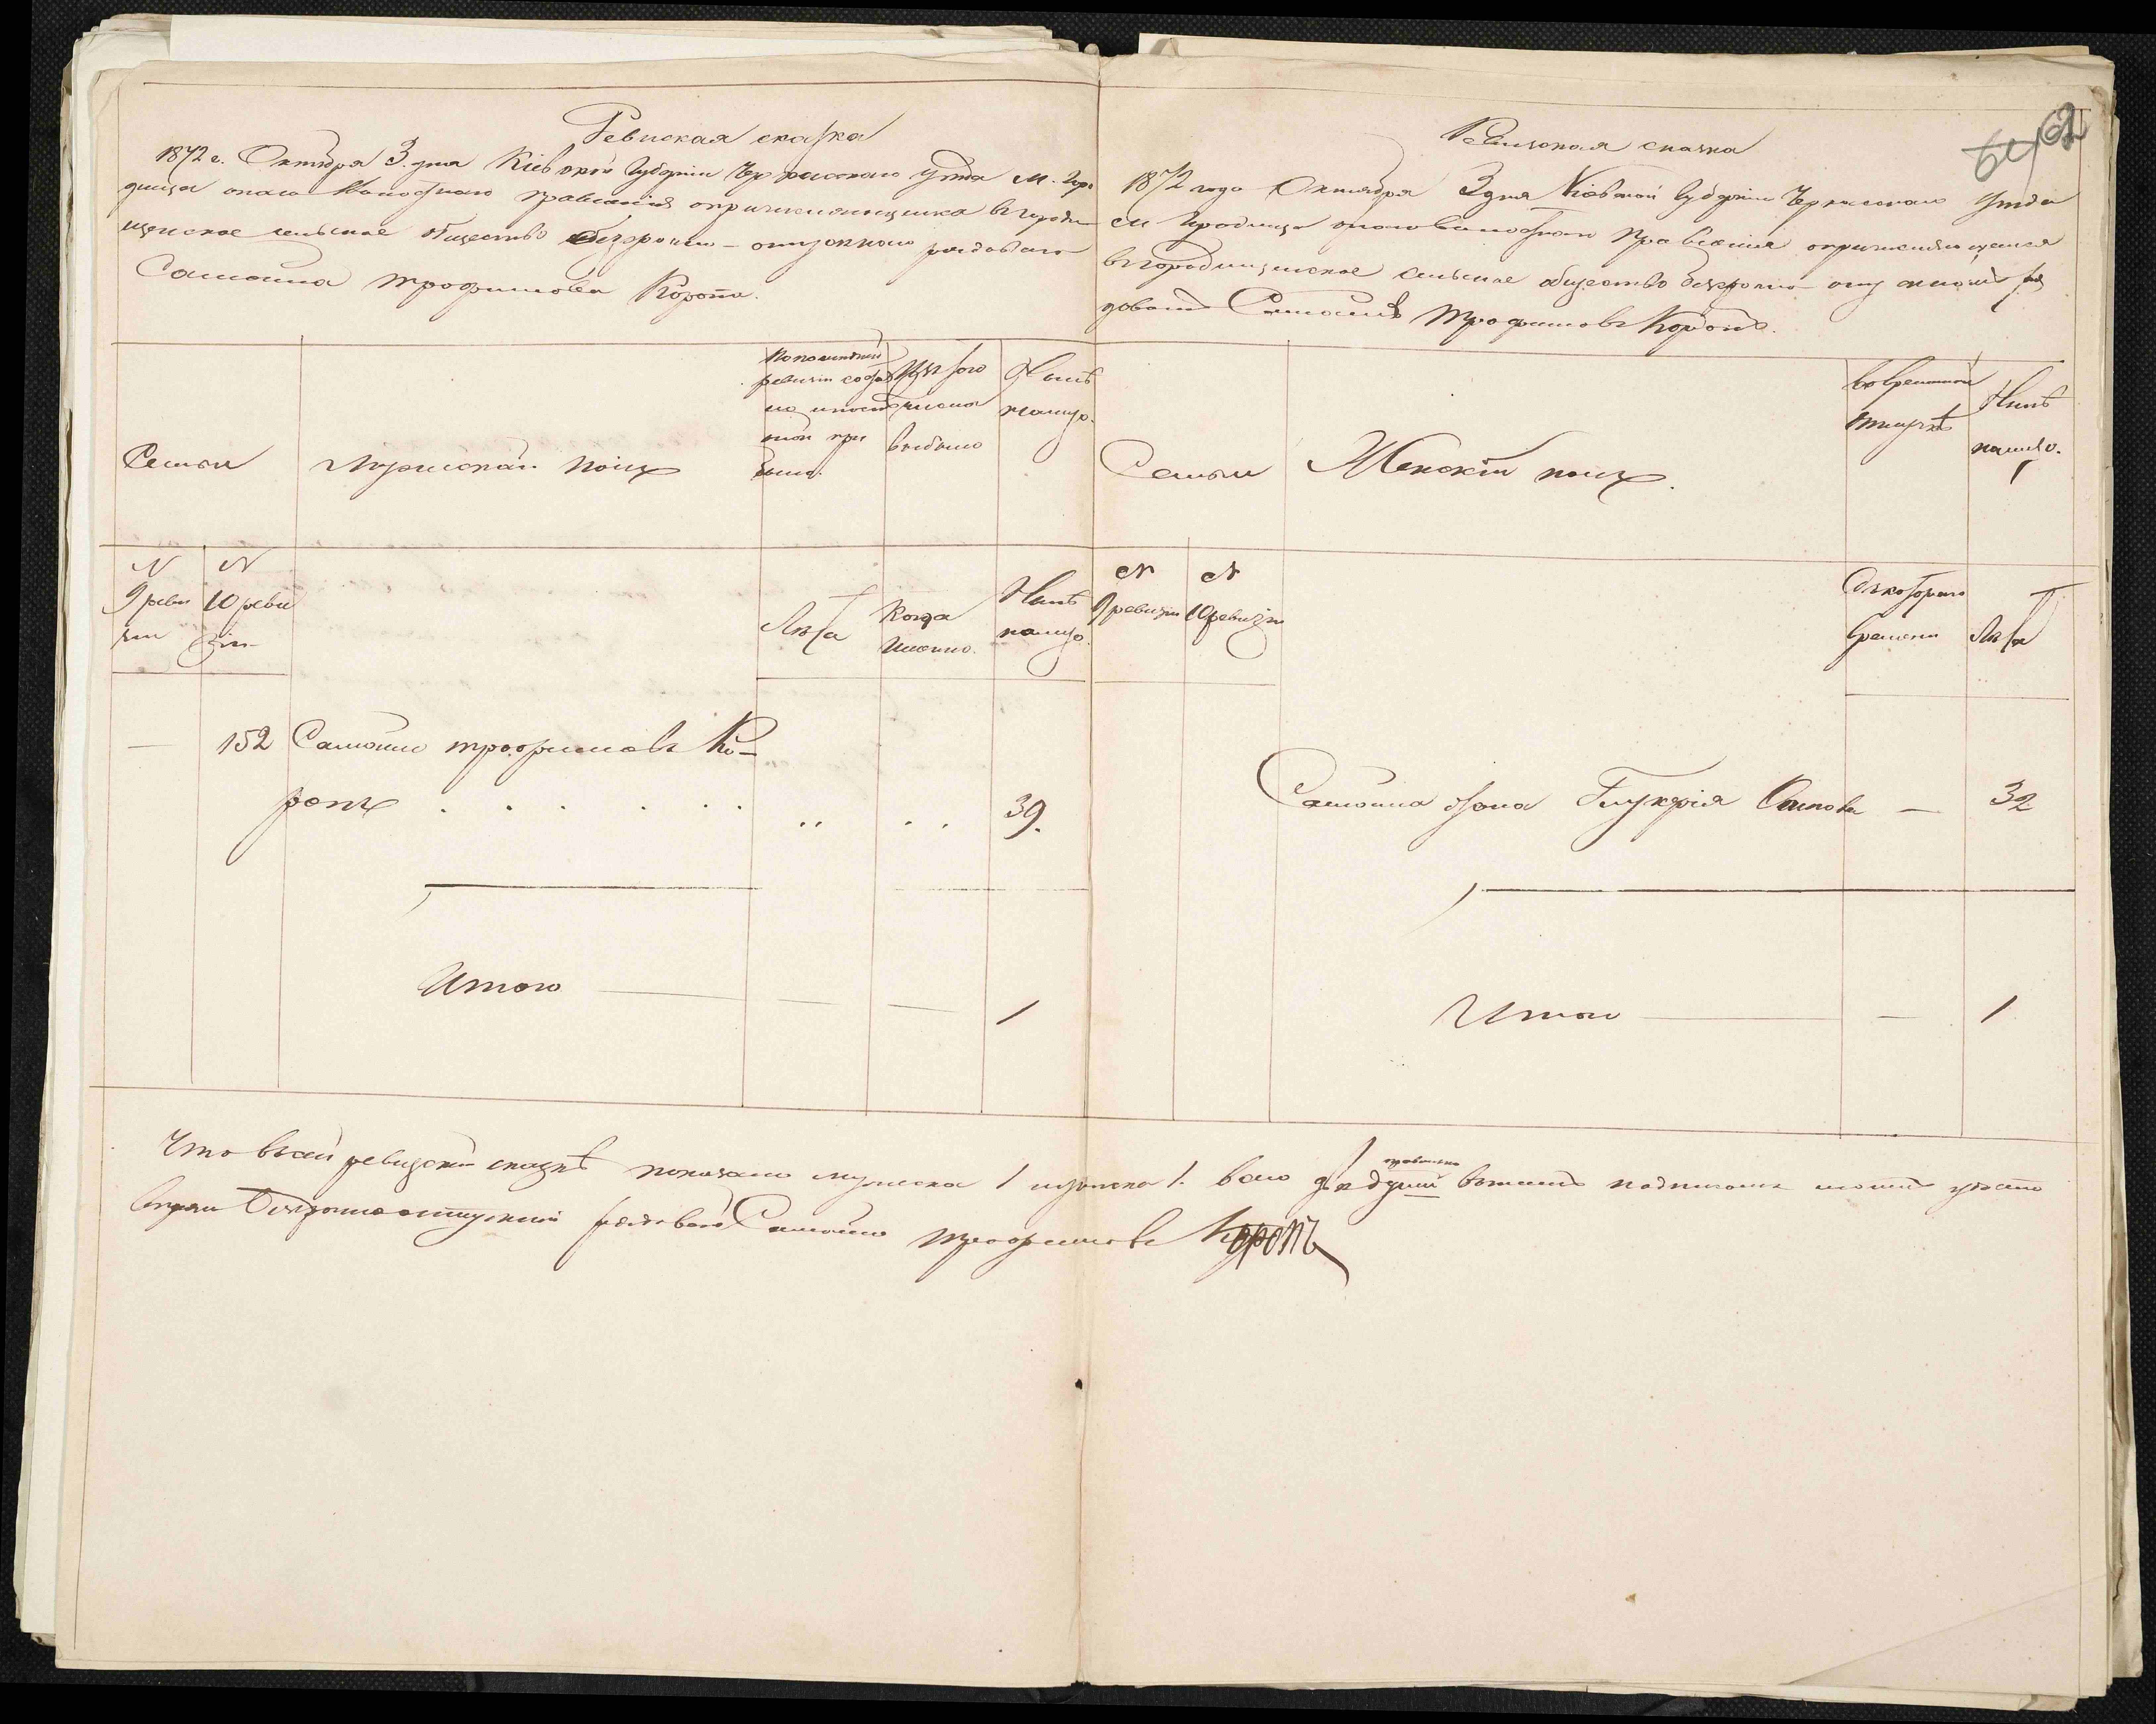 Ревиская сказка
1872 г. Октября 3. дня Кіевской Губерніи Черкасскаго Уезда М. Горо
дища онаго Волостнаго Правленія о причисляющимся в городи
щенское сельское общество безсрочно-отпускного рядового
Самойла Трофимова Коропа.
Семьи
Мужескій полъ
По последней
ревизіи состоя
ло и после
той при
было.
Изъ того
числа
выбыло
Нынѣ
налицо.
N
9 реви
зіи
N
10 реви
зіи
Лета
Когда
именно.
Нынѣ
налицо.
— 152 Самойло Трофимовъ Ко-
ропъ . . . . . . .. .. 39.
Итого — — — 1
62
Ревизская сказка
1872 года Октября 3 дня Кіевской Губерніи Черкасскаго Уезда
М Городища онаго Волостнаго Правленія о причисляющемся
в городищенское сельское общество безсрочно-отпускномъ ря
довомъ Самойлѣ Трофимовѣ Коропѣ.
Семьи
Женскій полъ.
Во временной
отлучкѣ
Нынѣ
налицо.
N
9 ревизіи
N
10 ревизіи
Съ котораго
времени
Лета
Самойла жена Гликерія — 32
Итого — — 1
Что в сей ревизской сказкѣ показано мужеска 1 и женска 1. всего две души в томъ подписомъ моимъ удосто
веряю Безсрочноотпускной рядовой Самойло Трофимовъ Коропъ